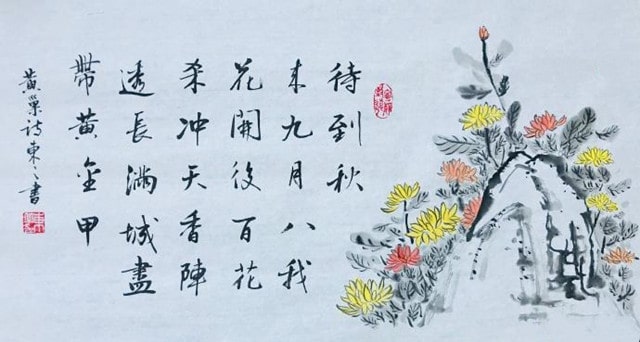 待到秋
来九月八我
花開後百花
杀冲天香陣
透長滿城盡
帶黄金甲
黄巢诗東々書